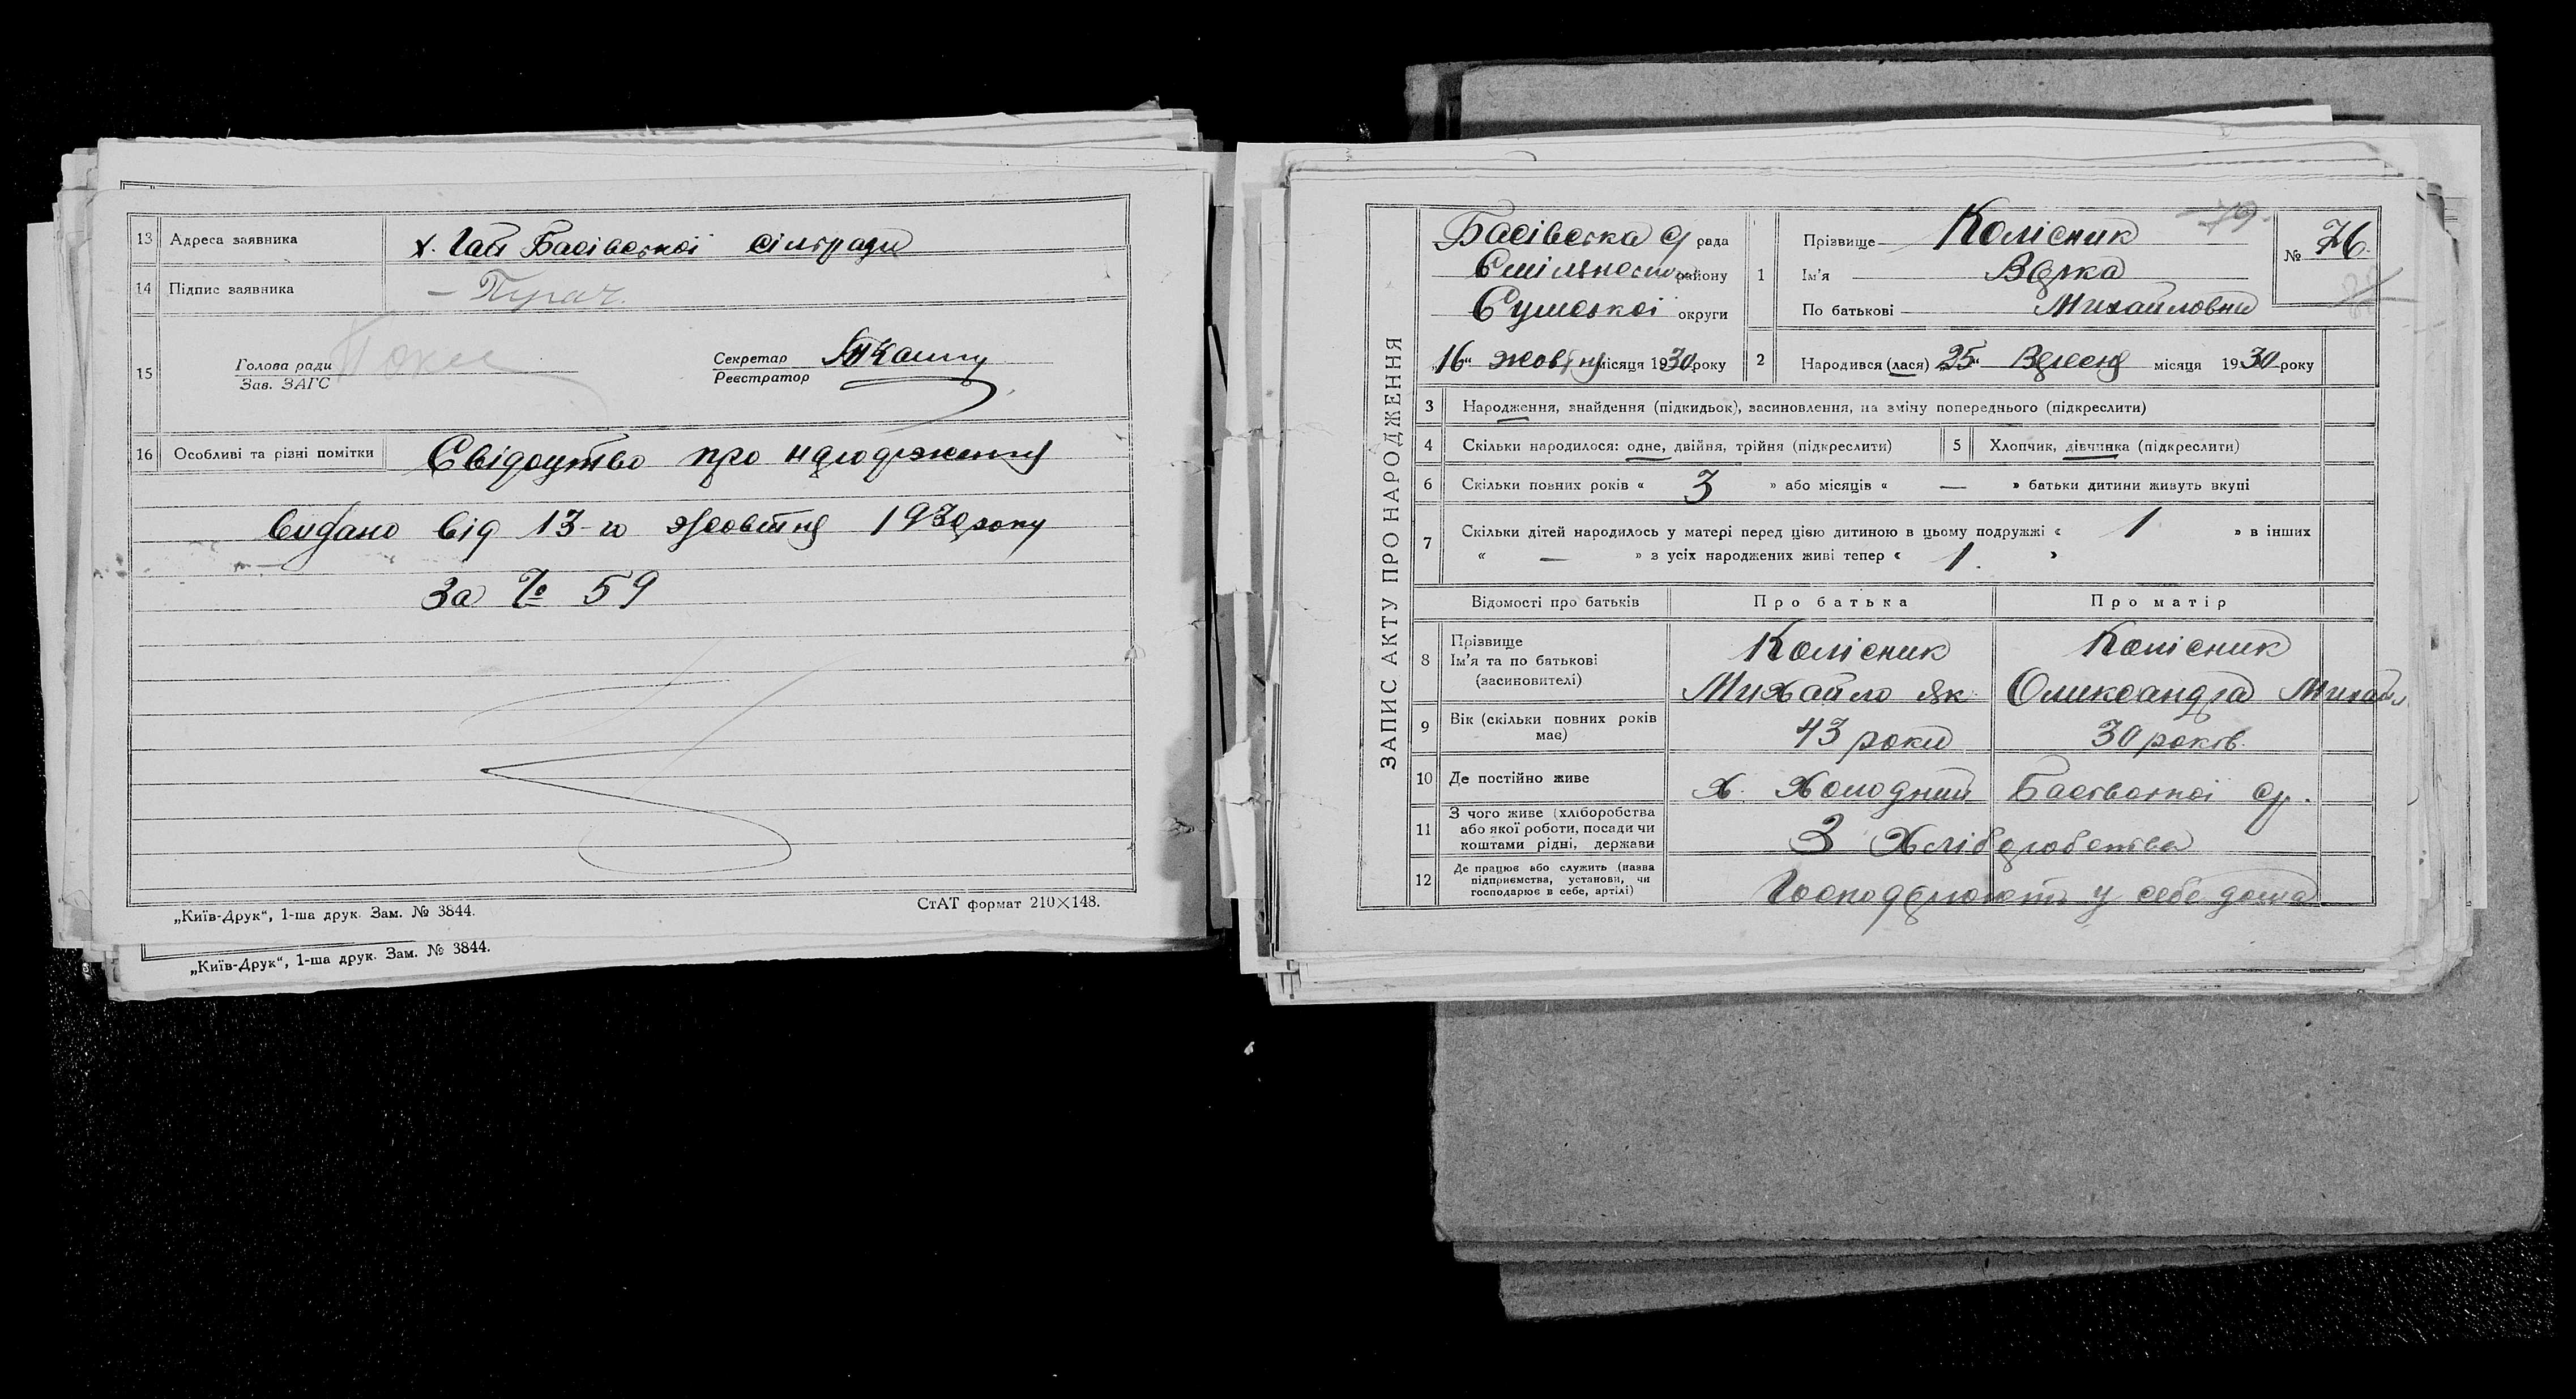 13 Адреса заявника х. Гай Басівської сільради
14 Підпис заявника
15 Голова ради
Зав. ЗАГС
Секретар
Реєстратор
16 Особливі та різні помітки Свідоцтво про народження
видано від 13-го Жовтня 1930 року
За № 59
„Київ-Друк“, 1-ша друк. Зам. № 3844.
СтАТ формат 210×148.
„Київ-Друк“, 1-ша друк. Зам. № 3844.
ЗАПИС АКТУ ПРО НАРОДЖЕННЯ
Басівска с/ рада
району
Сумської округи
„16“ жовтня місяця 1930 року
1 Прізвище Колісник
Ім'я Варка
По батькові Михайловна
№ 76.
79
2 Народився (лася) „25“ Вересня місяця 1930 року
3 Народження, знайдення (підкидьок), засиновлення, на зміну попереднього (підкреслити)
4 Скільки народилося: одне, двійня, трійня (підкреслити)
5 Хлопчик, дівчинка (підкреслити)
6 Скільки повних років « 3 » або місяців « — » батьки дитини живуть вкупі
7 Скільки дітей народилось у матері перед цією дитиною в цьому подружжі « 1 » в інших
« — » з усіх народжених живі тепер « 1. »
Відомості про батьків Про батька Про матір
8 Прізвище
Ім'я та по батькові
(засиновителі)
Колісник
Михайло Як
Колісник
Олександра Михайл
9 Вік (скільки повних років
має)
43 роки 30 років.
10 Де постійно живе х. Холодний Басівської ср.
11 З чого живе (хліборобства
або якої роботи, посади чи
коштами рідні, держави
З Хліборобства
12 Де працює або служить (назва
підприємства, установи, чи
господарює в себе, артілі)
Господарюють у себе дома